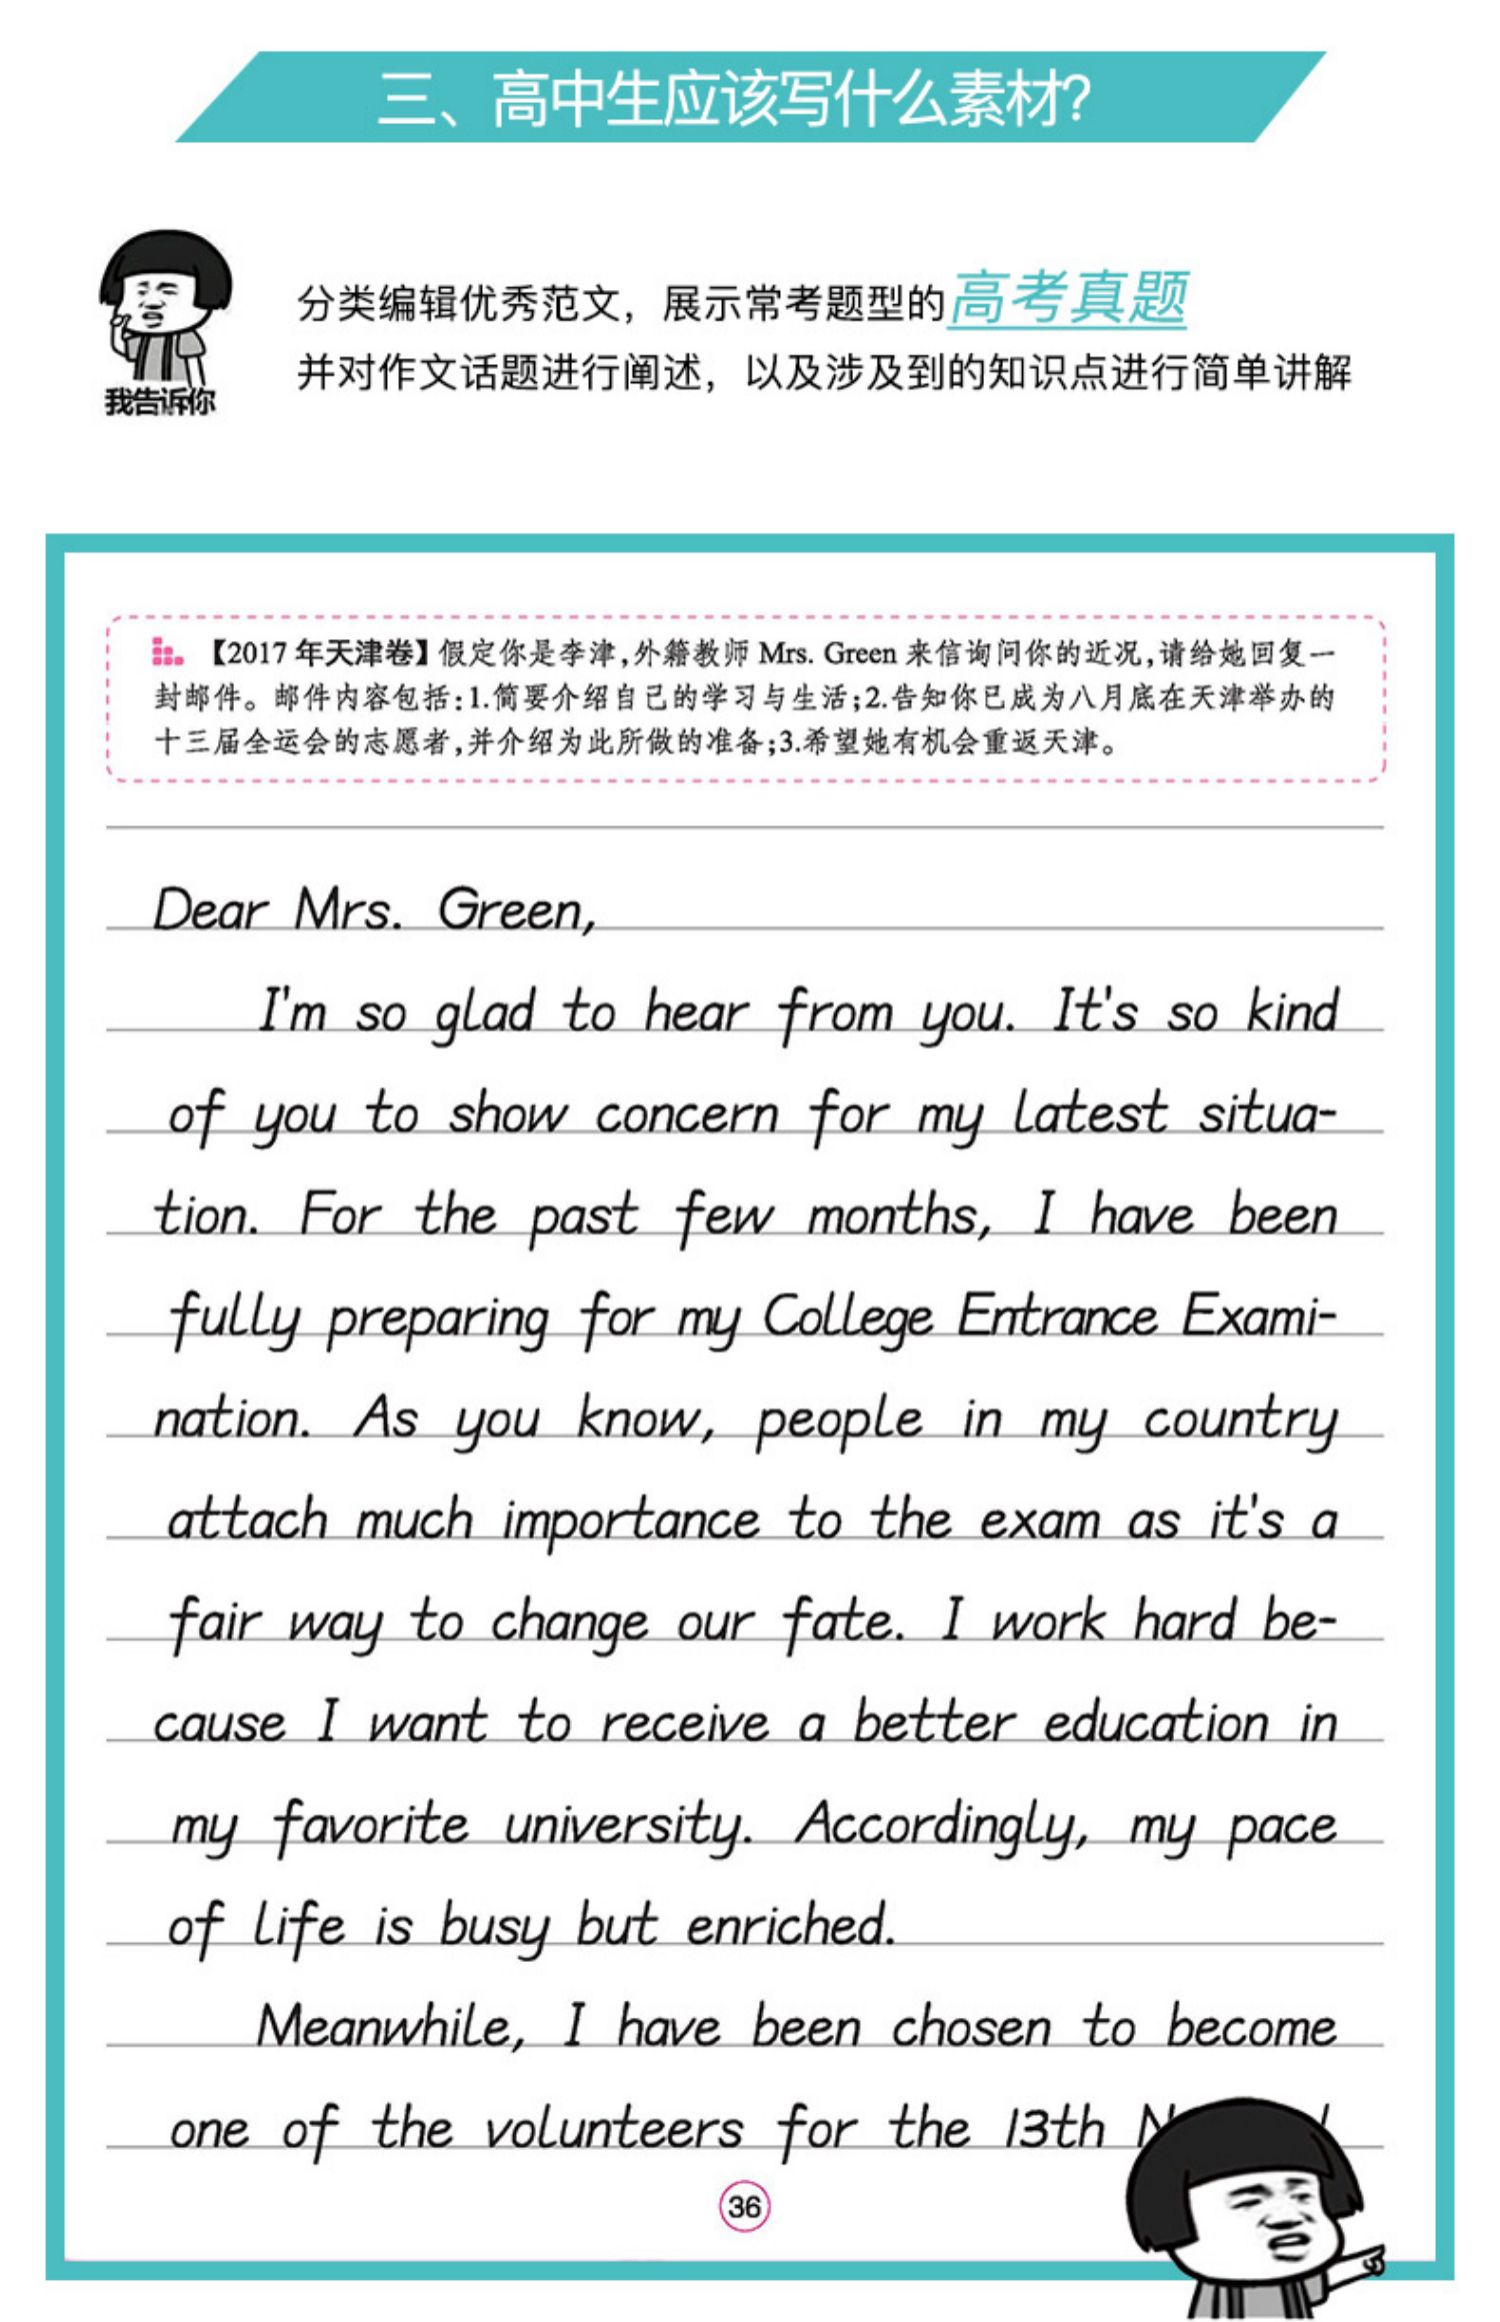 三、高中生应该写什么素材?
分类编辑优秀范文，展示常考题型的高考真题
并对作文话题进行阐述，以及涉及到的知识点进行简单讲解
我告诉你
【2017年天津卷】假定你是李津,外籍教师 Mrs. Green 来信询问你的近况,请给她回复一
封邮件。邮件内容包括:1.简要介绍自己的学习与生活;2.告知你已成为八月底在天津举办的
十三届全运会的志愿者,并介绍为此所做的准备;3.希望她有机会重返天津。
Dear Mrs. Green,
I'm so glad to hear from you. It's so kind
of you to show concern for my latest situa-
tion. For the past few months, I have been
fully preparing for my College Entrance Exami-
nation. As you know, people in my country
attach much importance to the exam as it's a
fair way to change our fate. I work hard be-
cause I want to receive a better education in
my favorite university. Accordingly, my pace
of life is busy but enriched.
Meanwhile, I have been chosen to become
one of the volunteers for the 13th
36